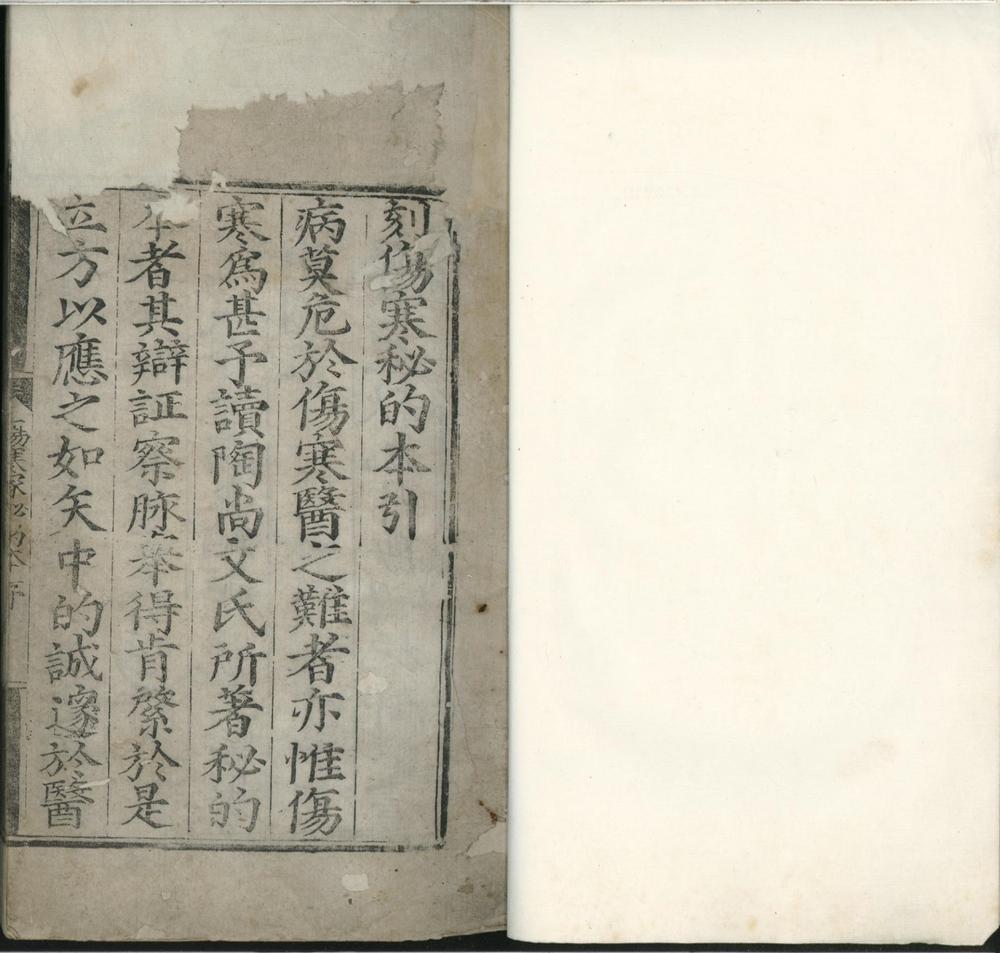 刻傷寒秘的本引
病莫危於傷寒醫之難者亦惟傷
寒爲甚予讀陶尚文氏所著秘的
本者其辯証察脉率得肯綮於是
立方以應之如矢中的誠邃於醫
傷寒家秘的本序